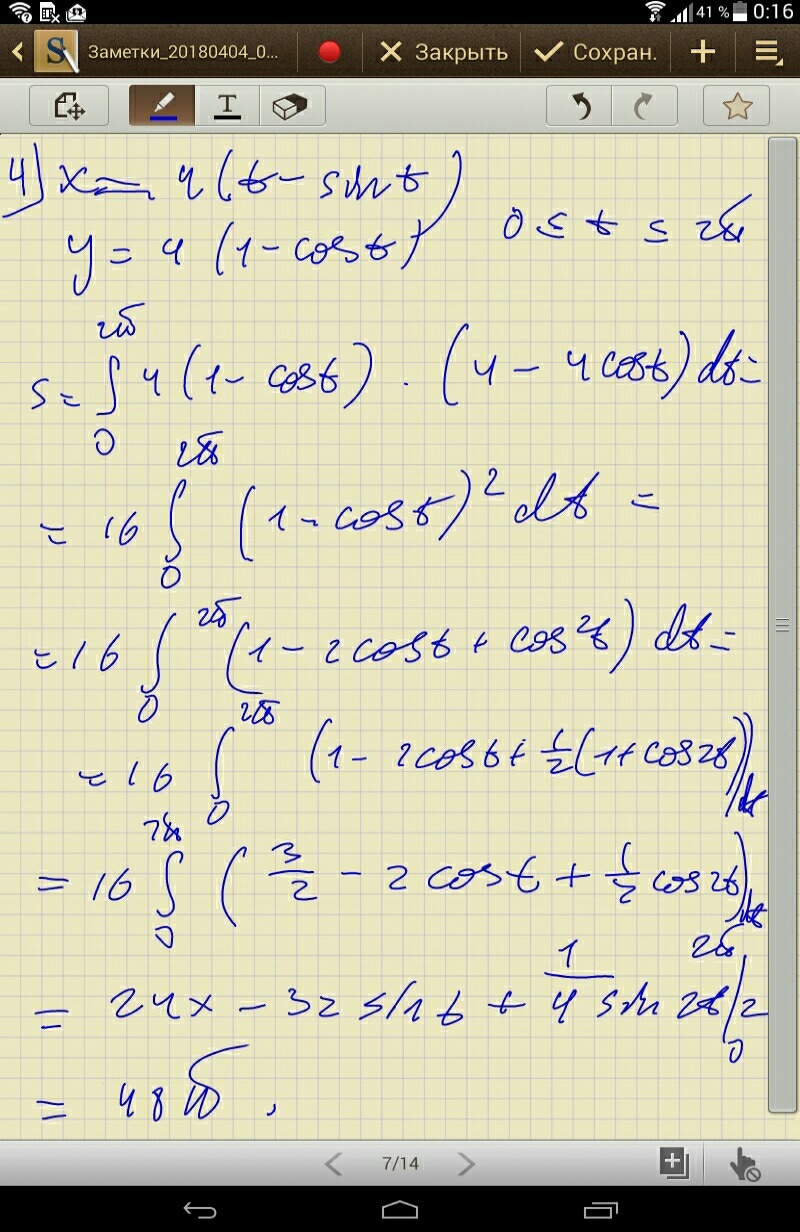 41 % 0:16
Заметки_20180404_0... Закрыть Сохран.
T
4) x = 4 (t - sin t)
y = 4 (1 - cos t) 0 ≤ t ≤ 2π
s = ∫₀^2π 4 (1 - cos t) · (4 - 4 cos t) dt =
= 16 ∫₀^2π (1 - cos t)² dt =
= 16 ∫₀^2π (1 - 2 cos t + cos² t) dt =
= 16 ∫₀^2π (1 - 2 cos t + 1/2 (1 + cos 2t)) dt
= 16 ∫₀^2π (3/2 - 2 cos t + 1/2 cos 2t) dt
= 24x - 32 sin t + 1/4 sin 2t |₀^2π
= 48π .
7/14